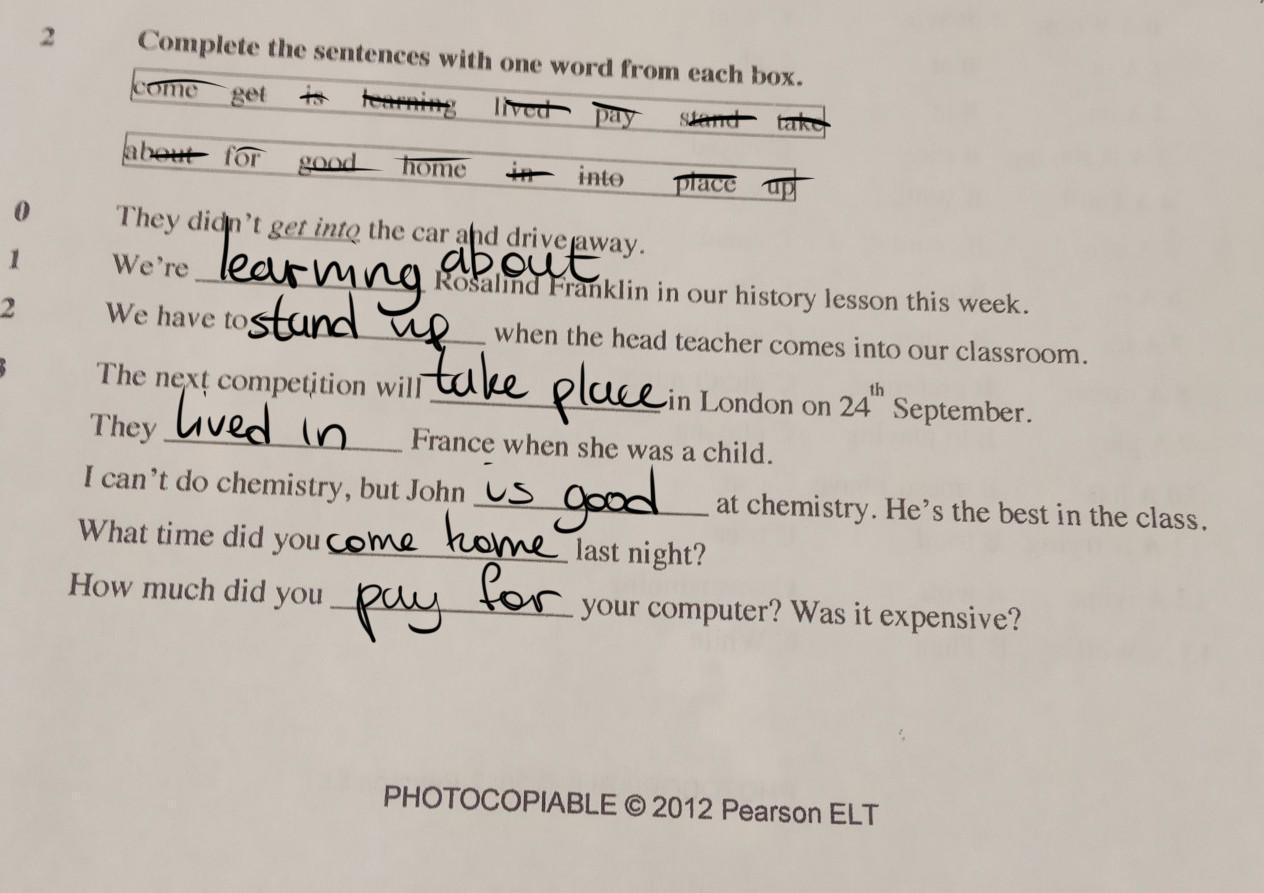 2 Complete the sentences with one word from each box.
come get is learning lived pay stand take
about for good home in into place up
0 They didn't get into the car and drive away.
1 We're learning about Rosalind Franklin in our history lesson this week.
2 We have to stand up when the head teacher comes into our classroom.
3 The next competition will take place in London on 24th September.
They lived in France when she was a child.
I can't do chemistry, but John is good at chemistry. He's the best in the class.
What time did you come home last night?
How much did you pay for your computer? Was it expensive?
PHOTOCOPIABLE © 2012 Pearson ELT